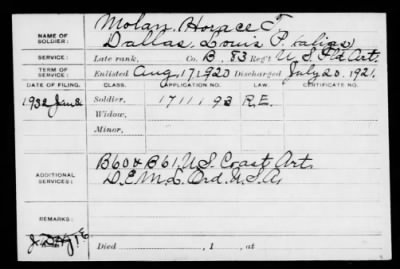 Molan, Horace T.
NAME OF SOLDIER: Dallas, Louis P. (alias)
SERVICE: Late rank, Co. B. 83 Reg't U.S. Fld Art.
TERM OF SERVICE: Enlisted Aug 17 1920 Discharged July 20, 1921.
DATE OF FILING. CLASS. APPLICATION NO. LAW. CERTIFICATE NO.
1932 Jan 2 Soldier. 1711193 R.E.
Widow.
Minor.
ADDITIONAL SERVICES: B60 & B61, U.S. Coast Art.
D.E.M.L. Ord. U.S.A.
REMARKS:
Died , 1 , at